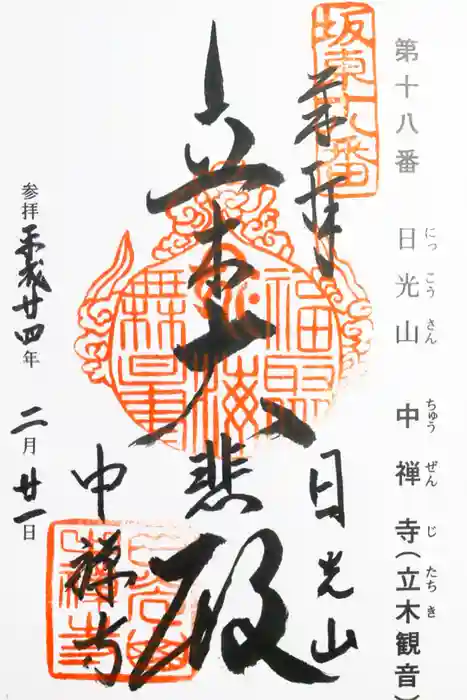 第十八番 日光山 中禅寺(立木観音)
にっこうさん ちゅうぜんじ たちき
坂東十八番
奉拝
日光山
立木大悲殿
福聚海無量
中禅寺
参拝平成廿四年二月廿一日